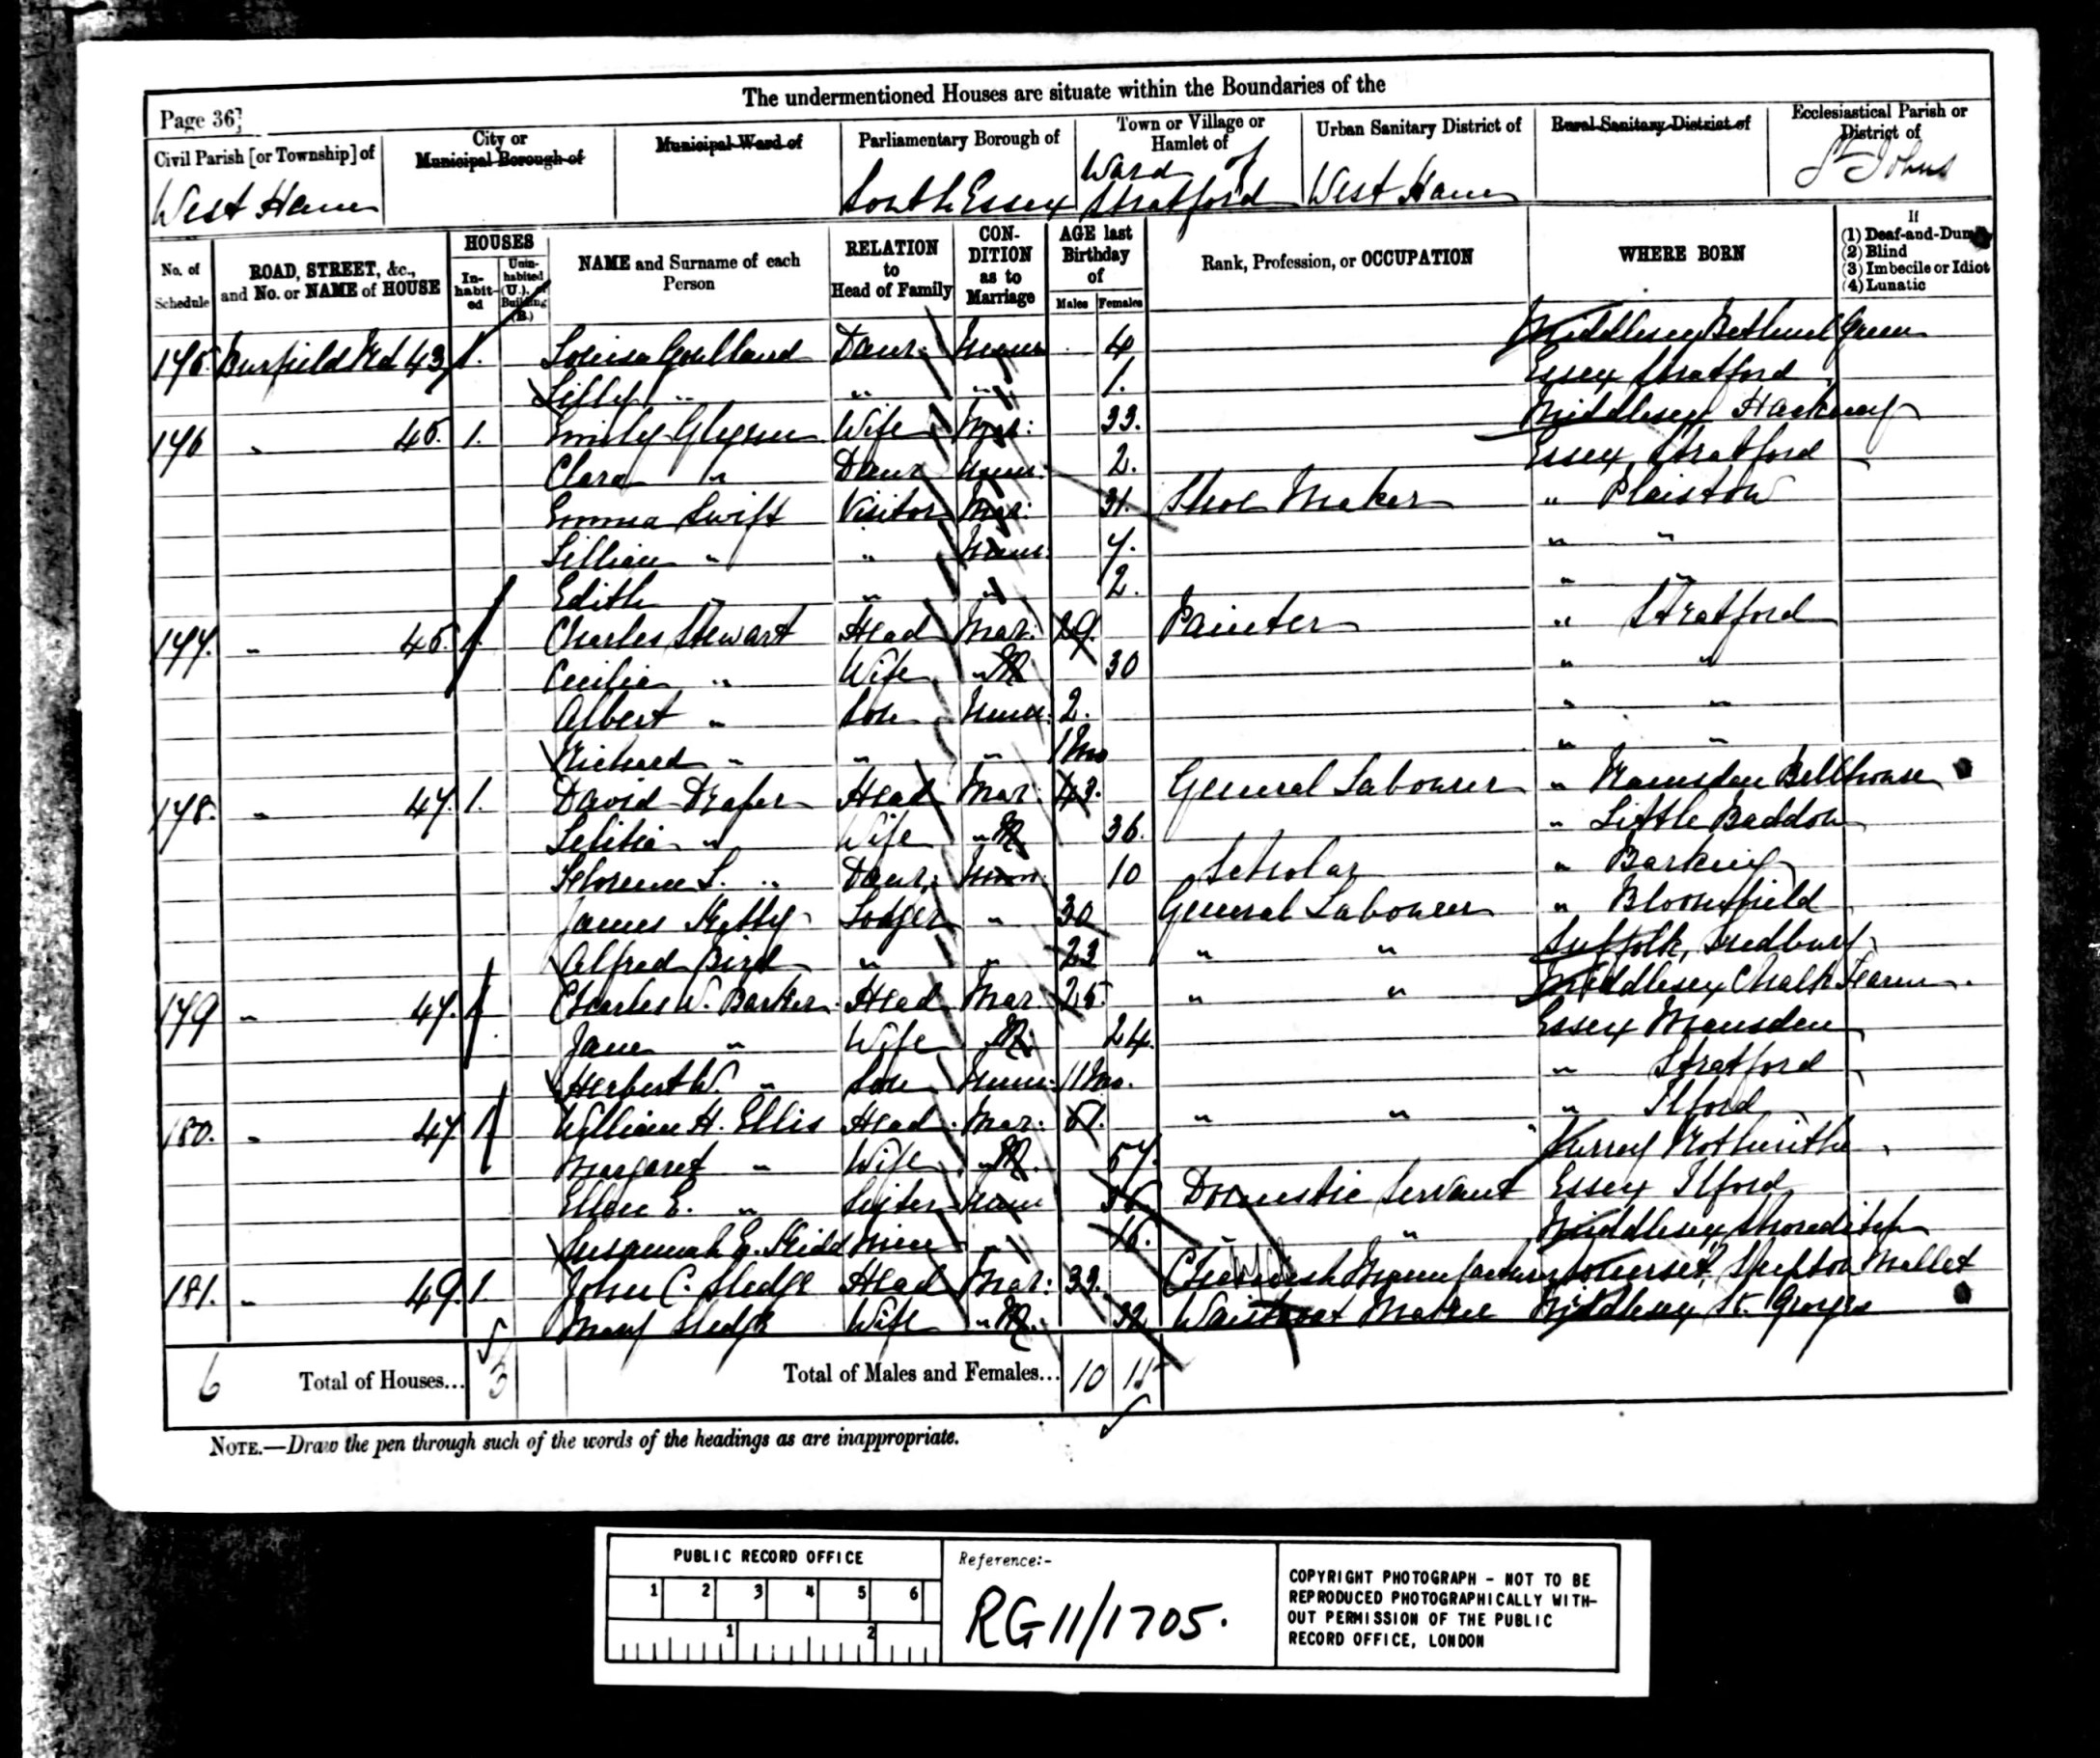 The undermentioned Houses are situate within the Boundaries of the
Page 36]
Civil Parish [or Township] of City or Municipal Borough of Municipal Ward of Parliamentary Borough of Town or Village or Hamlet of Urban Sanitary District of Rural Sanitary District of Ecclesiastical Parish or District of
West Ham South Essex Ward of Stratford West Ham St Johns
No. of Schedule ROAD, STREET, &c., and No. or NAME of HOUSE HOUSES In-habit-ed Unin-habited (U.), or Building (B.) NAME and Surname of each Person RELATION to Head of Family CON-DITION as to Marriage AGE last Birthday of Males Females Rank, Profession, or OCCUPATION WHERE BORN If (1) Deaf-and-Dumb (2) Blind (3) Imbecile or Idiot (4) Lunatic
175. Burfield Rd 43 1. Louisa Daur. Unm 4 Middlesex Bethnal Green
Lilly " " " 1. Essex Stratford
176 " 45. 1. Emily Wife Mar: 33. Middlesex Hackney
Clara " Daur Unm: 2. Essex Stratford
Emma Swift Visitor Mar: 31. Shoe Maker " Plaistow
Lillian " " Unm: 7. " "
Edith " " " 2. " "
177. " 45. 1. Charles Stewart Head Mar: 29. Painter " Stratford
Cecilia " Wife " 30 " "
Albert " Son Unm: 2. " "
Richard " " " 1 Mo " "
178. " 47. 1. David Draper Head Mar: 43. General Labourer " Ramsden Bellhouse
Letitia " Wife " 36. " Little Baddow
Florence L. " Daur: Unm 10 Scholar " Barking
James Lodger " 30 General Labourer " Bloomfield
Alfred Bird " " 23 " " Suffolk, Sudbury
179 " 47. 1. Charles W. Barker Head Mar: 25. " " Middlesex Chalk Farm.
Jane " Wife 24. Essex
Herbert W. " Son Unm: 11 Mo. " Stratford
180. " 47 1. William H. Ellis Head Mar: 61. " " " Ilford
Margaret " Wife " 57. Surrey Rotherithe
Ellen E. " Sister Unm 56 Domestic Servant Essex Ilford
Susannah E. Kidd Niece " 16. " " Middlesex Shoreditch
181. " 49. 1. John C. Sledge Head Mar: 33. Somerset, Shepton Mallet
Mary Sledge Wife " 32 Waistcoat Maker Middlesex St. Georges
6 Total of Houses... Total of Males and Females... 10 15
NOTE.—Draw the pen through such of the words of the headings as are inappropriate.
PUBLIC RECORD OFFICE
1 2 3 4 5 6
1 2
Reference:-
RG 11/1705.
COPYRIGHT PHOTOGRAPH - NOT TO BE
REPRODUCED PHOTOGRAPHICALLY WITH-
OUT PERMISSION OF THE PUBLIC
RECORD OFFICE, LONDON